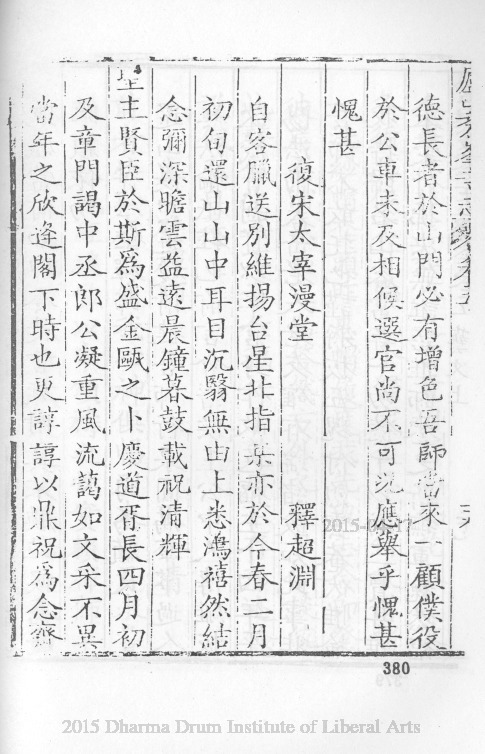 德長者於山門必有增色吾師當來一顧僕役
於公車未及相候選官尚不可況應舉乎愧甚
愧甚
復宋太宰漫堂 釋超淵
自客臘送別維揚台星北指某亦於今春二月
初旬還山山中耳目沉翳無由上悉鴻禧然結
念彌深瞻雲益遠晨鐘暮鼓載祝清輝
聖主賢臣於斯為盛金甌之卜慶道胥長四月初
及章門謁中丞郎公凝重風流藹如文采不異
當年之欣逢閣下時也更諄諄以鼎祝為念齋
380
2015 Dharma Drum Institute of Liberal Arts